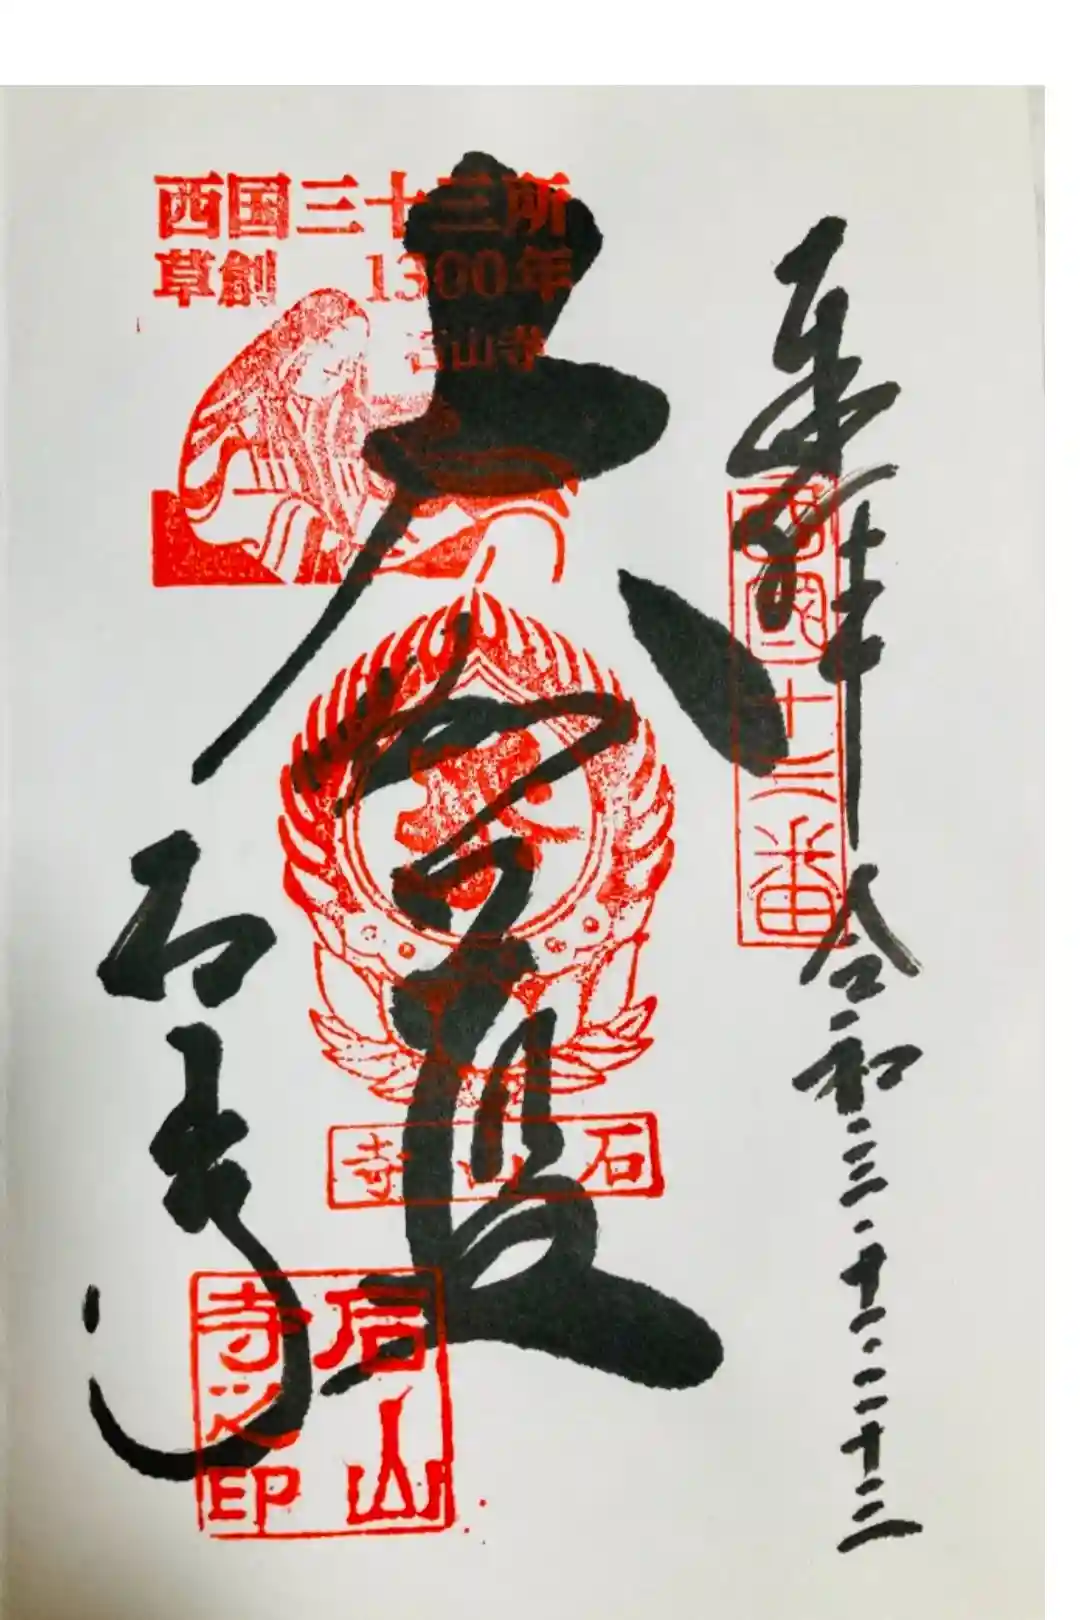 奉拝
西國十三番
令和三・十・二十三
西国三十三所
草創 1300年
石山寺
大伽藍
石山寺
石山寺
石山寺之印